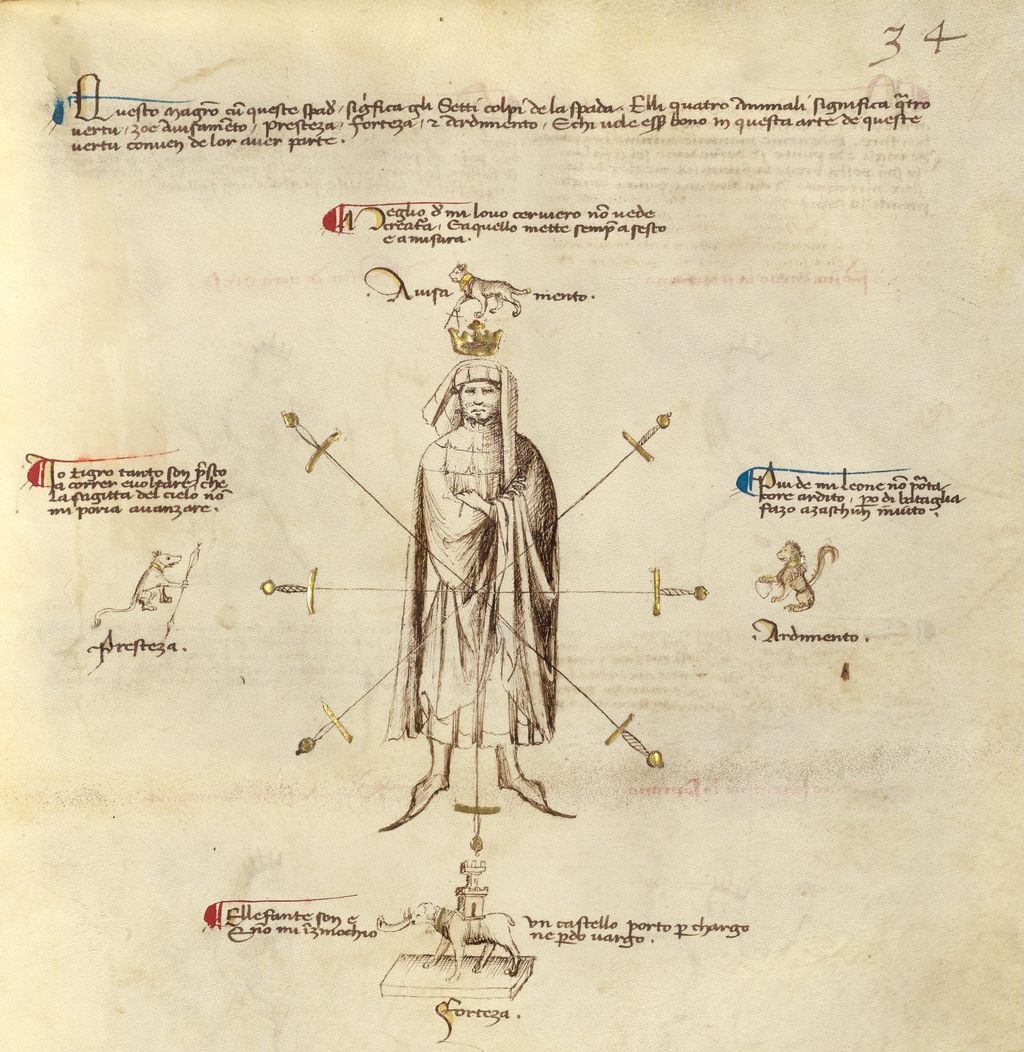 34
Questo magrõ cũ queste spad̃ · significa gli Setti colpi de la spada · Elli quatro animali significa q̃tro
vertu · zoe Avisamẽto · Presteza · Forteza · ⁊ Ardimento · E chi vole ess̃ bono in questa arte de queste
vertu conven de lor aver parte ·
Meglio d̃ mi lovo cerviero nõ vede
creat̃a · Eaquello mette semp̃ a sesto
e a misura ·
· Avisa mento ·
Io tigro tanto son p̃sto
a correr e voltare · che
La sagitta del cielo nõ
mi poria avanzare ·
Piu de mi leone nõ porta
core ardito · po di bataglia
fazo azaschun invito ·
Presteza ·
· Ardimento ·
Ellefante son e un castello porto p chargo
E nõ mi ĩzinochio ne p̃do vargo ·
Forteza ·